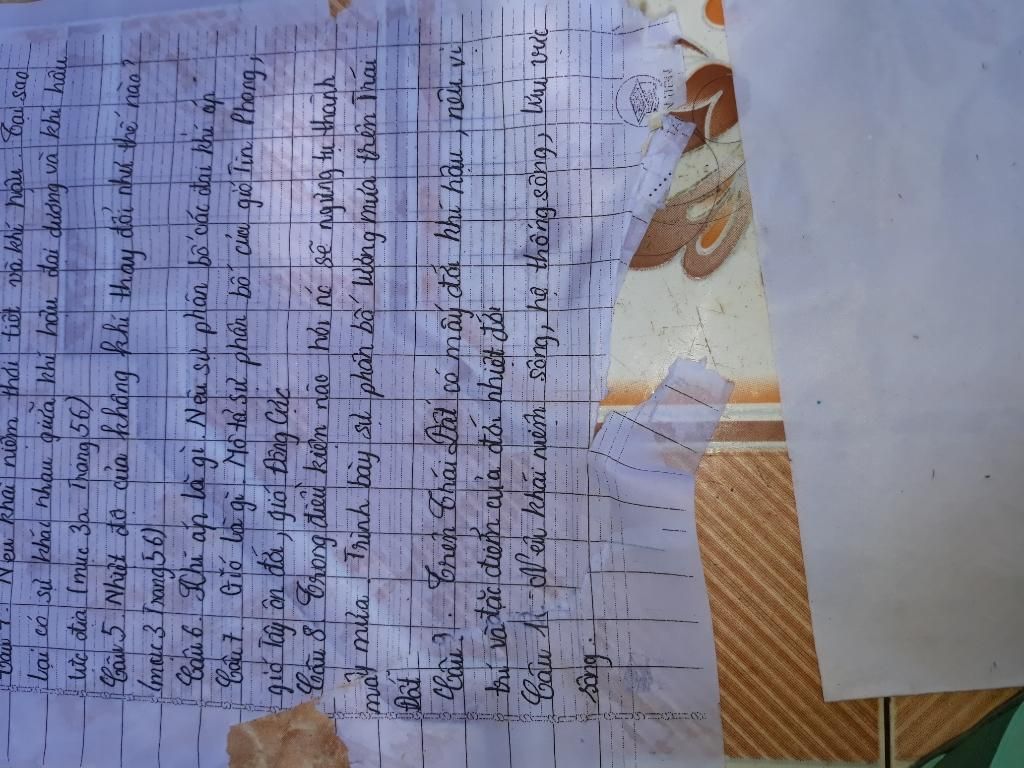 Câu 4. Nêu khái niệm thời tiết và khí hậu. Tại sao
lại có sự khác nhau giữa khí hậu đại dương và khí hậu
lục địa (mục 3a trang 56)
Câu 5 Nhiệt độ của không khí thay đổi như thế nào?
(mục 3 trang 56)
Câu 6 Khí áp là gì. Nêu sự phân bố các đai khí áp
Câu 7 Gió là gì. Mô tả sự phân bố của gió Tín Phong,
gió Tây ôn đới, gió Đông Cực
Câu 8 Trong điều kiện nào hơi nước sẽ ngưng tụ thành
mây mưa. Trình bày sự phân bố lượng mưa trên Trái
Đất
Câu 9. Trên Trái Đất có mấy đới khí hậu, nêu vị
trí và đặc điểm của đới nhiệt đới
Câu 1 - Nêu khái niệm sông, hệ thống sông, lưu vực
sông.